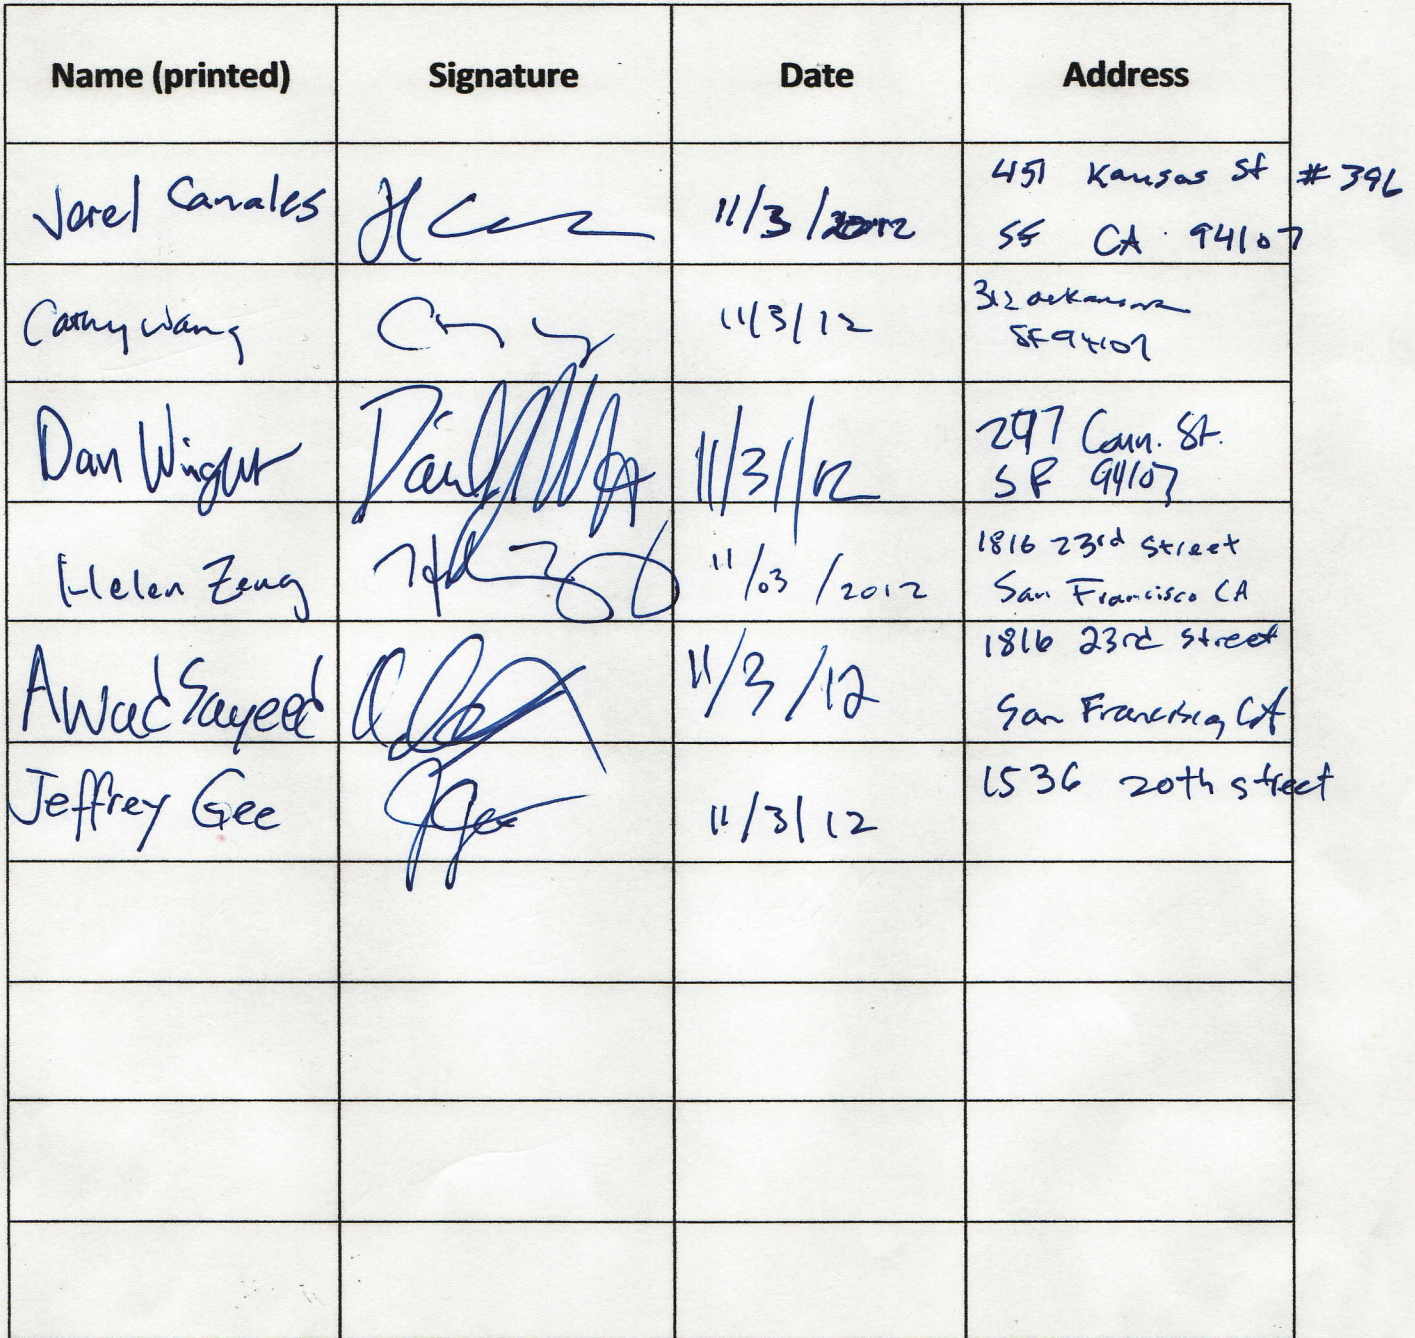 Name (printed) Signature Date Address
Jarel Canales 11/3/2012 451 Kansas St #396
SF CA 94107
Cathy Wang 11/3/12 312 arkansas
SF 94107
Dan Wright 11/3/12 297 Conn. St.
SF 94107
Helen Zeng 11/03/2012 1816 23rd Street
San Francisco CA
Awad Sayeed 11/3/12 1816 23rd Street
San Francisco, CA
Jeffrey Gee JGee 11/3/12 1536 20th street